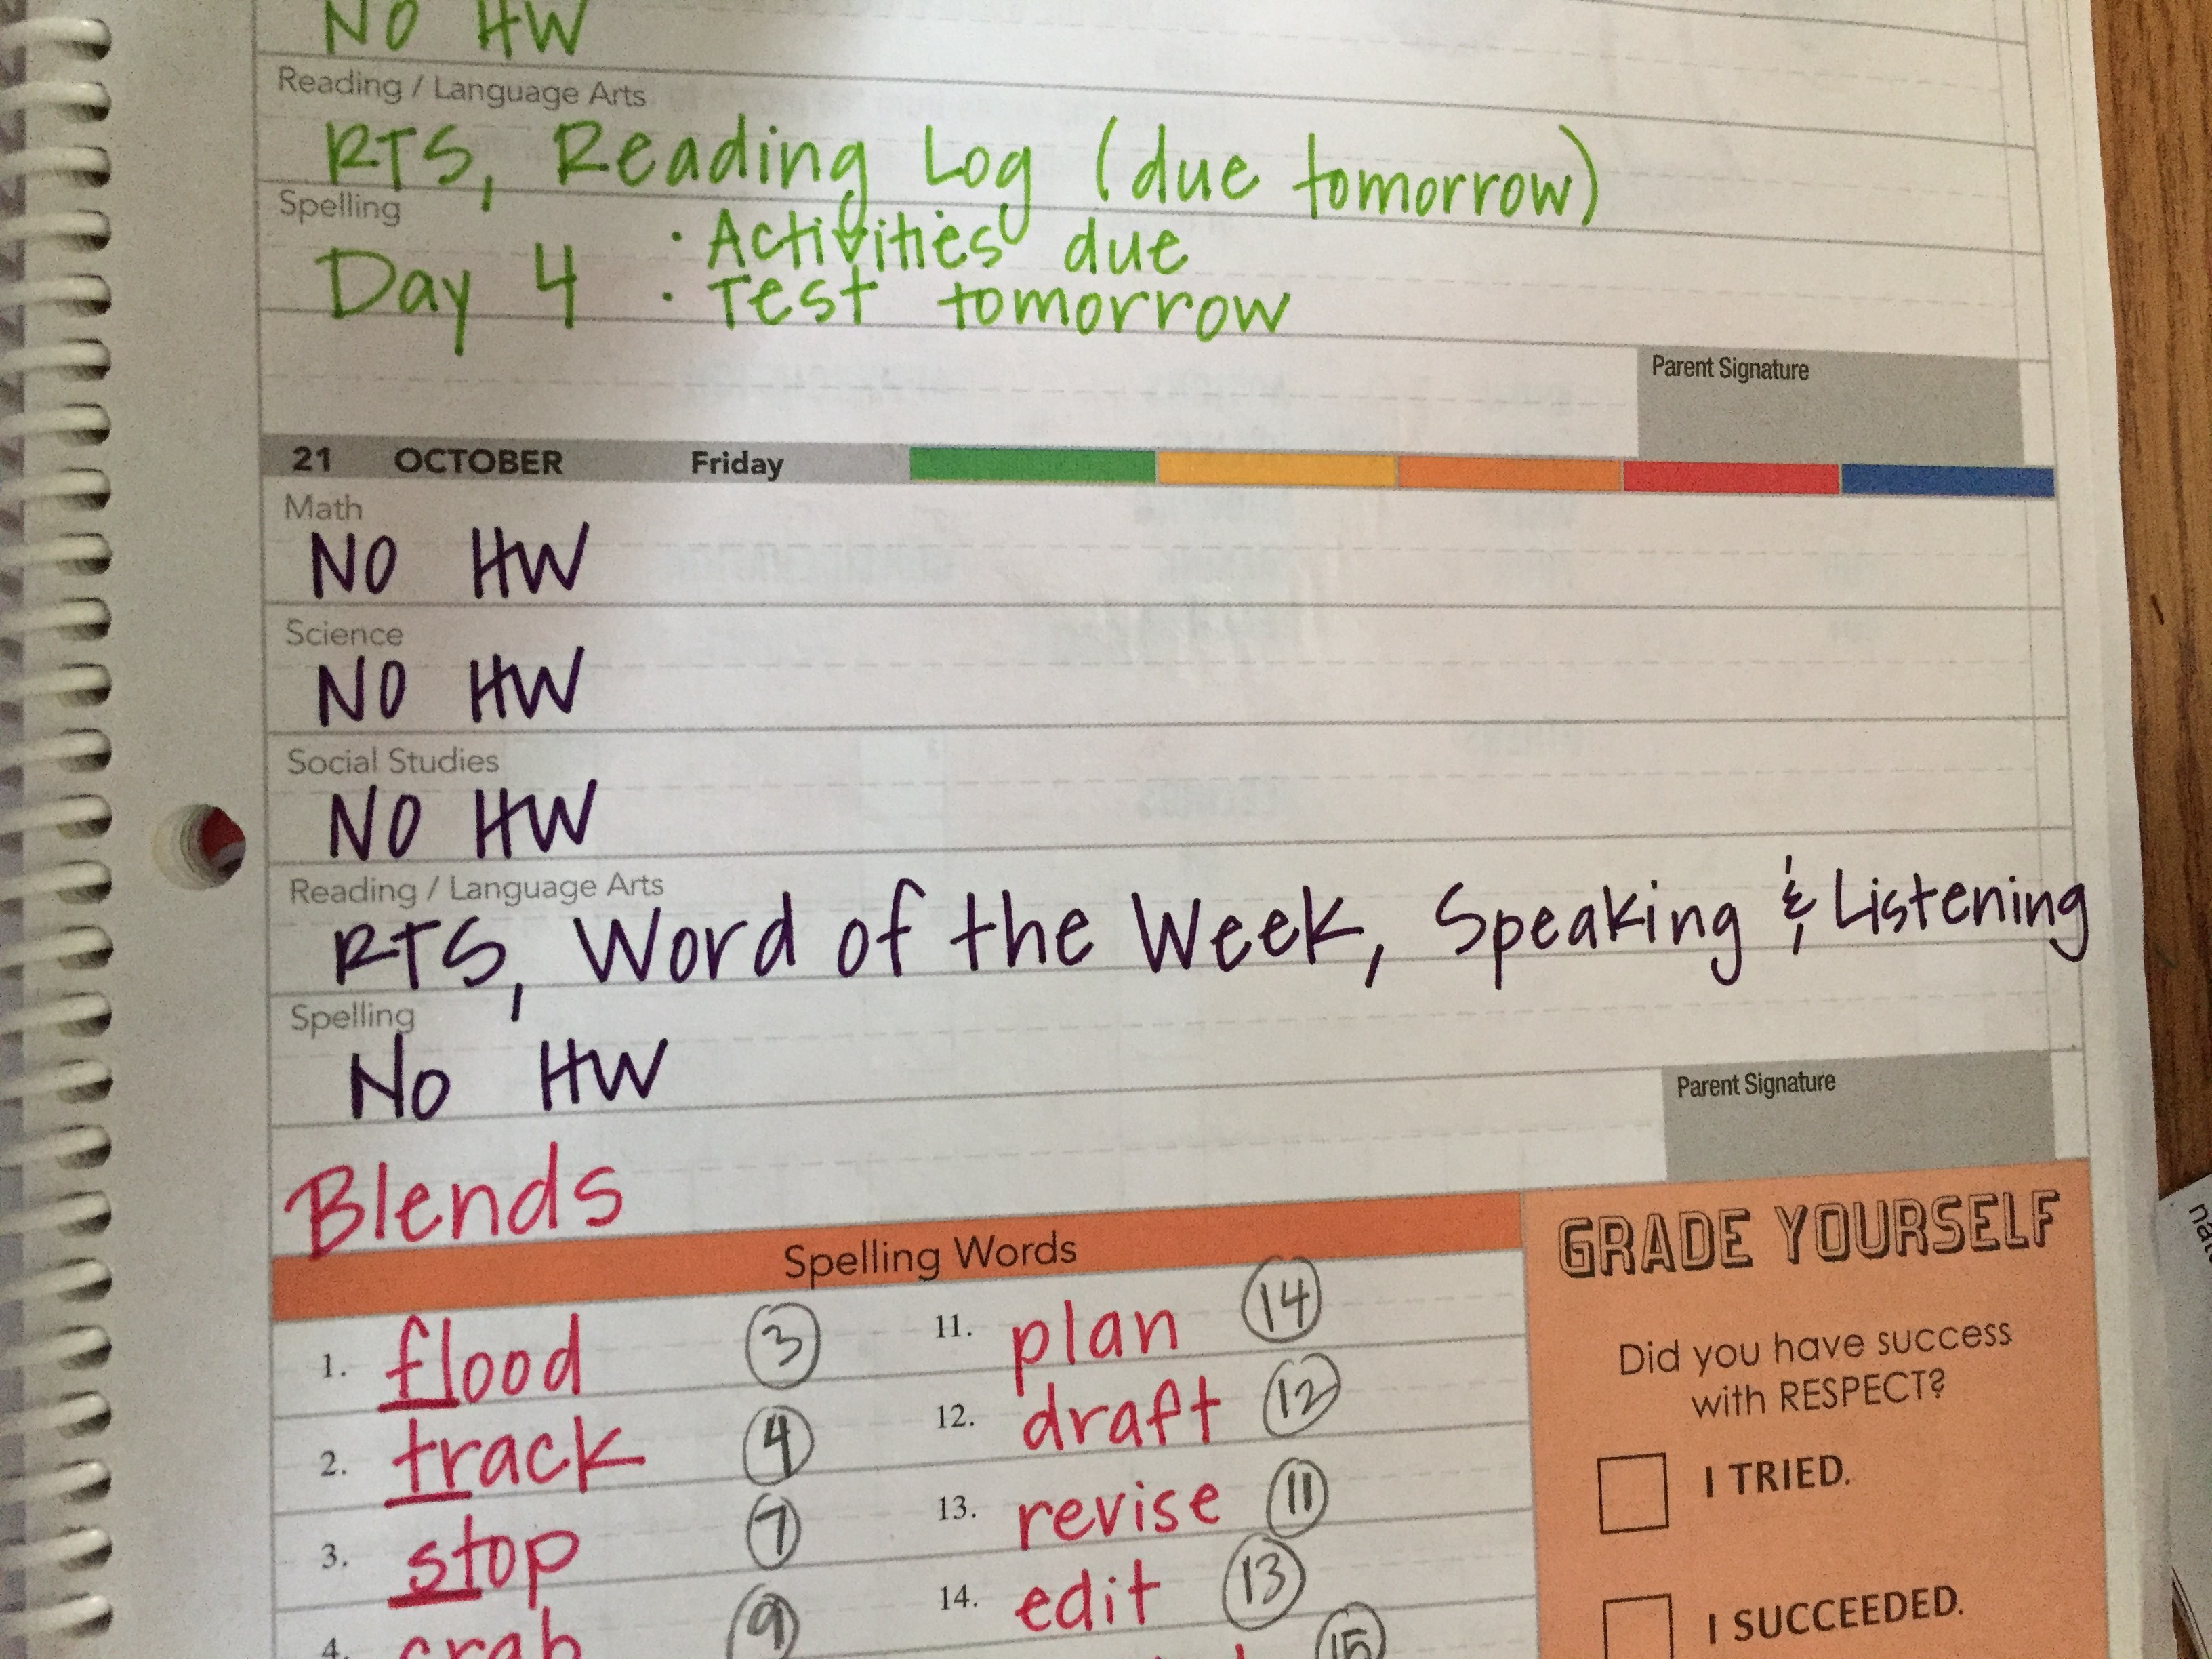 NO HW
Reading / Language Arts
RTS, Reading Log (due tomorrow)
Spelling
Day 4 · Activities due
· Test tomorrow
Parent Signature
21 OCTOBER Friday
Math
NO HW
Science
NO HW
Social Studies
NO HW
Reading / Language Arts
RTS, Word of the Week, Speaking & Listening
Spelling
No HW
Parent Signature
Blends
Spelling Words
1. flood 3
2. track 4
3. stop 7
4. crab 9
11. plan 14
12. draft 12
13. revise 11
14. edit 13
15
GRADE YOURSELF
Did you have success
with RESPECT?
I TRIED.
I SUCCEEDED.